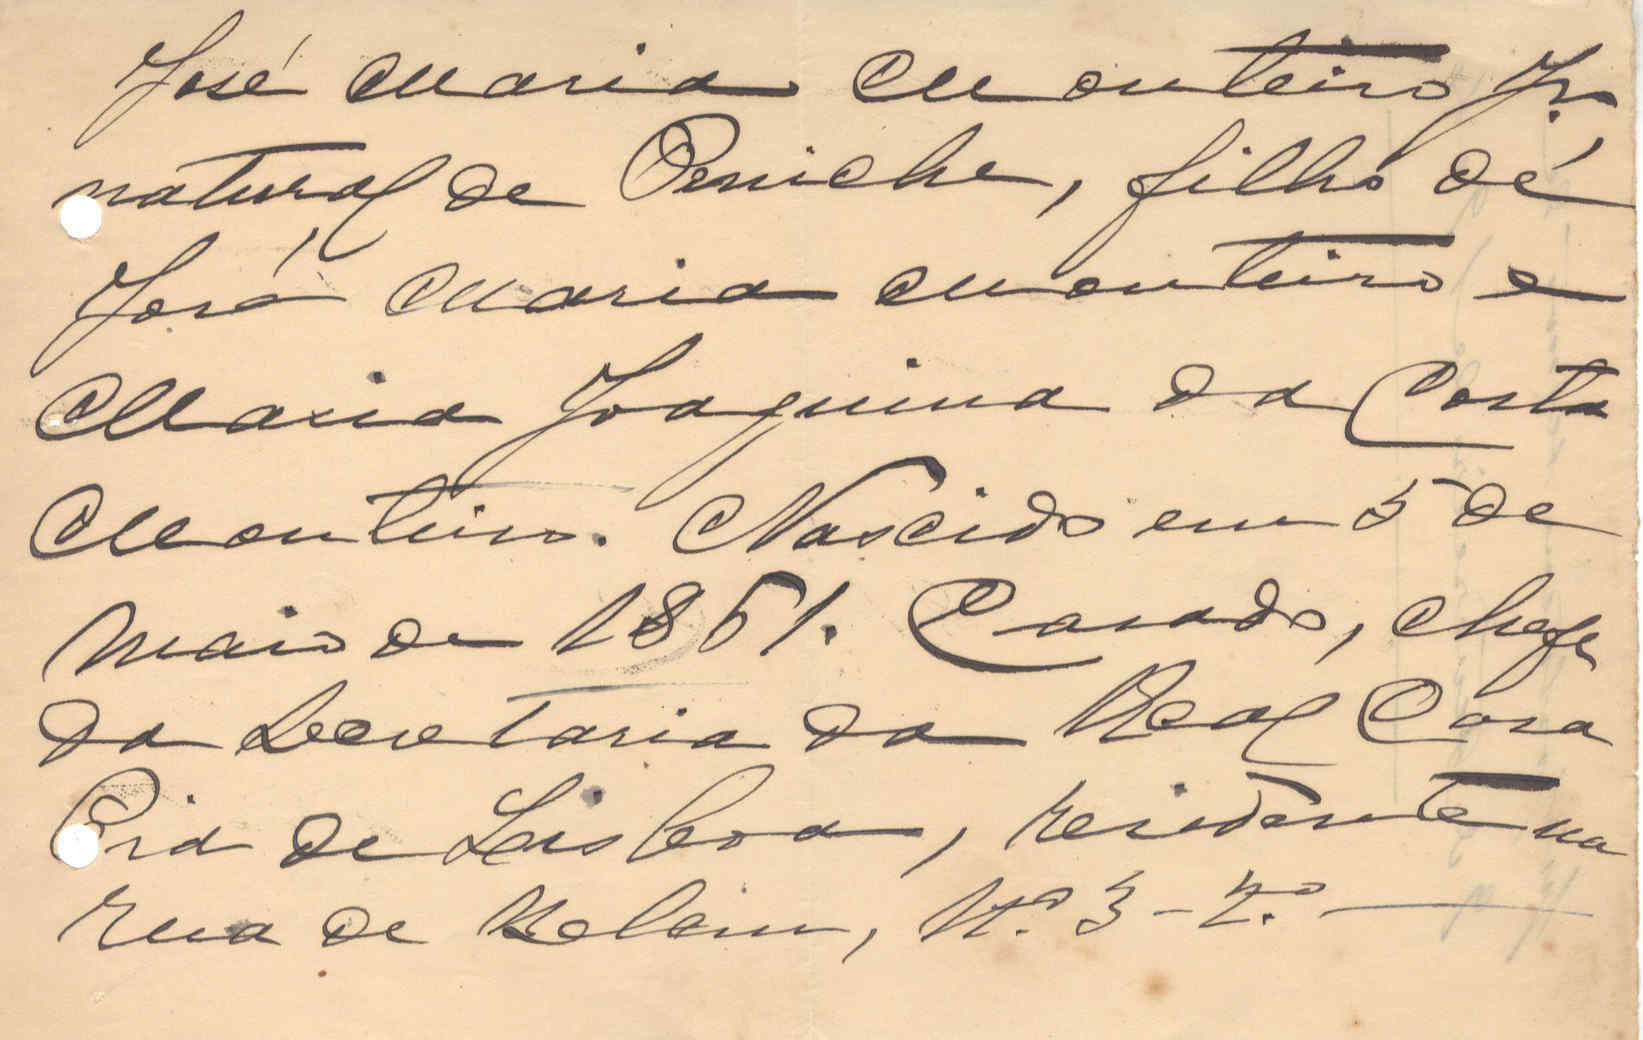 José Maria Monteiro Jr,
natural de Peniche, filho de
José Maria Monteiro e
Maria Joaquina da Costa
Monteiro. Nascido em 5 de
Maio de 1861. Casado, chefe
da Secretaria da Real Casa
Pia de Lisboa, residente na
Rua de Belem, Nº. 3-2.º